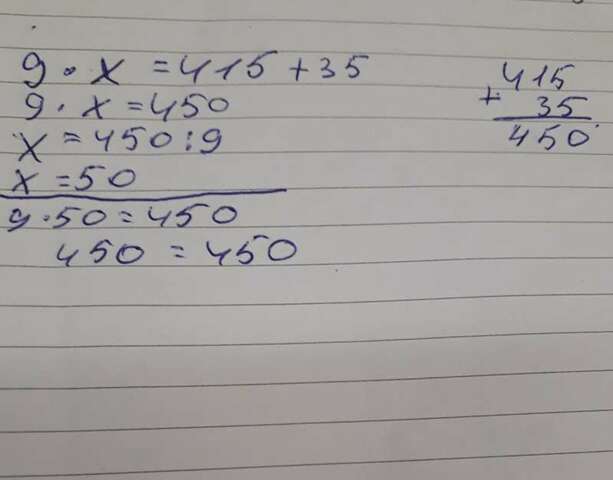 9 · x = 415 + 35
9 · x = 450
x = 450 : 9
x = 50
9 · 50 = 450
450 = 450
415
+ 35
450